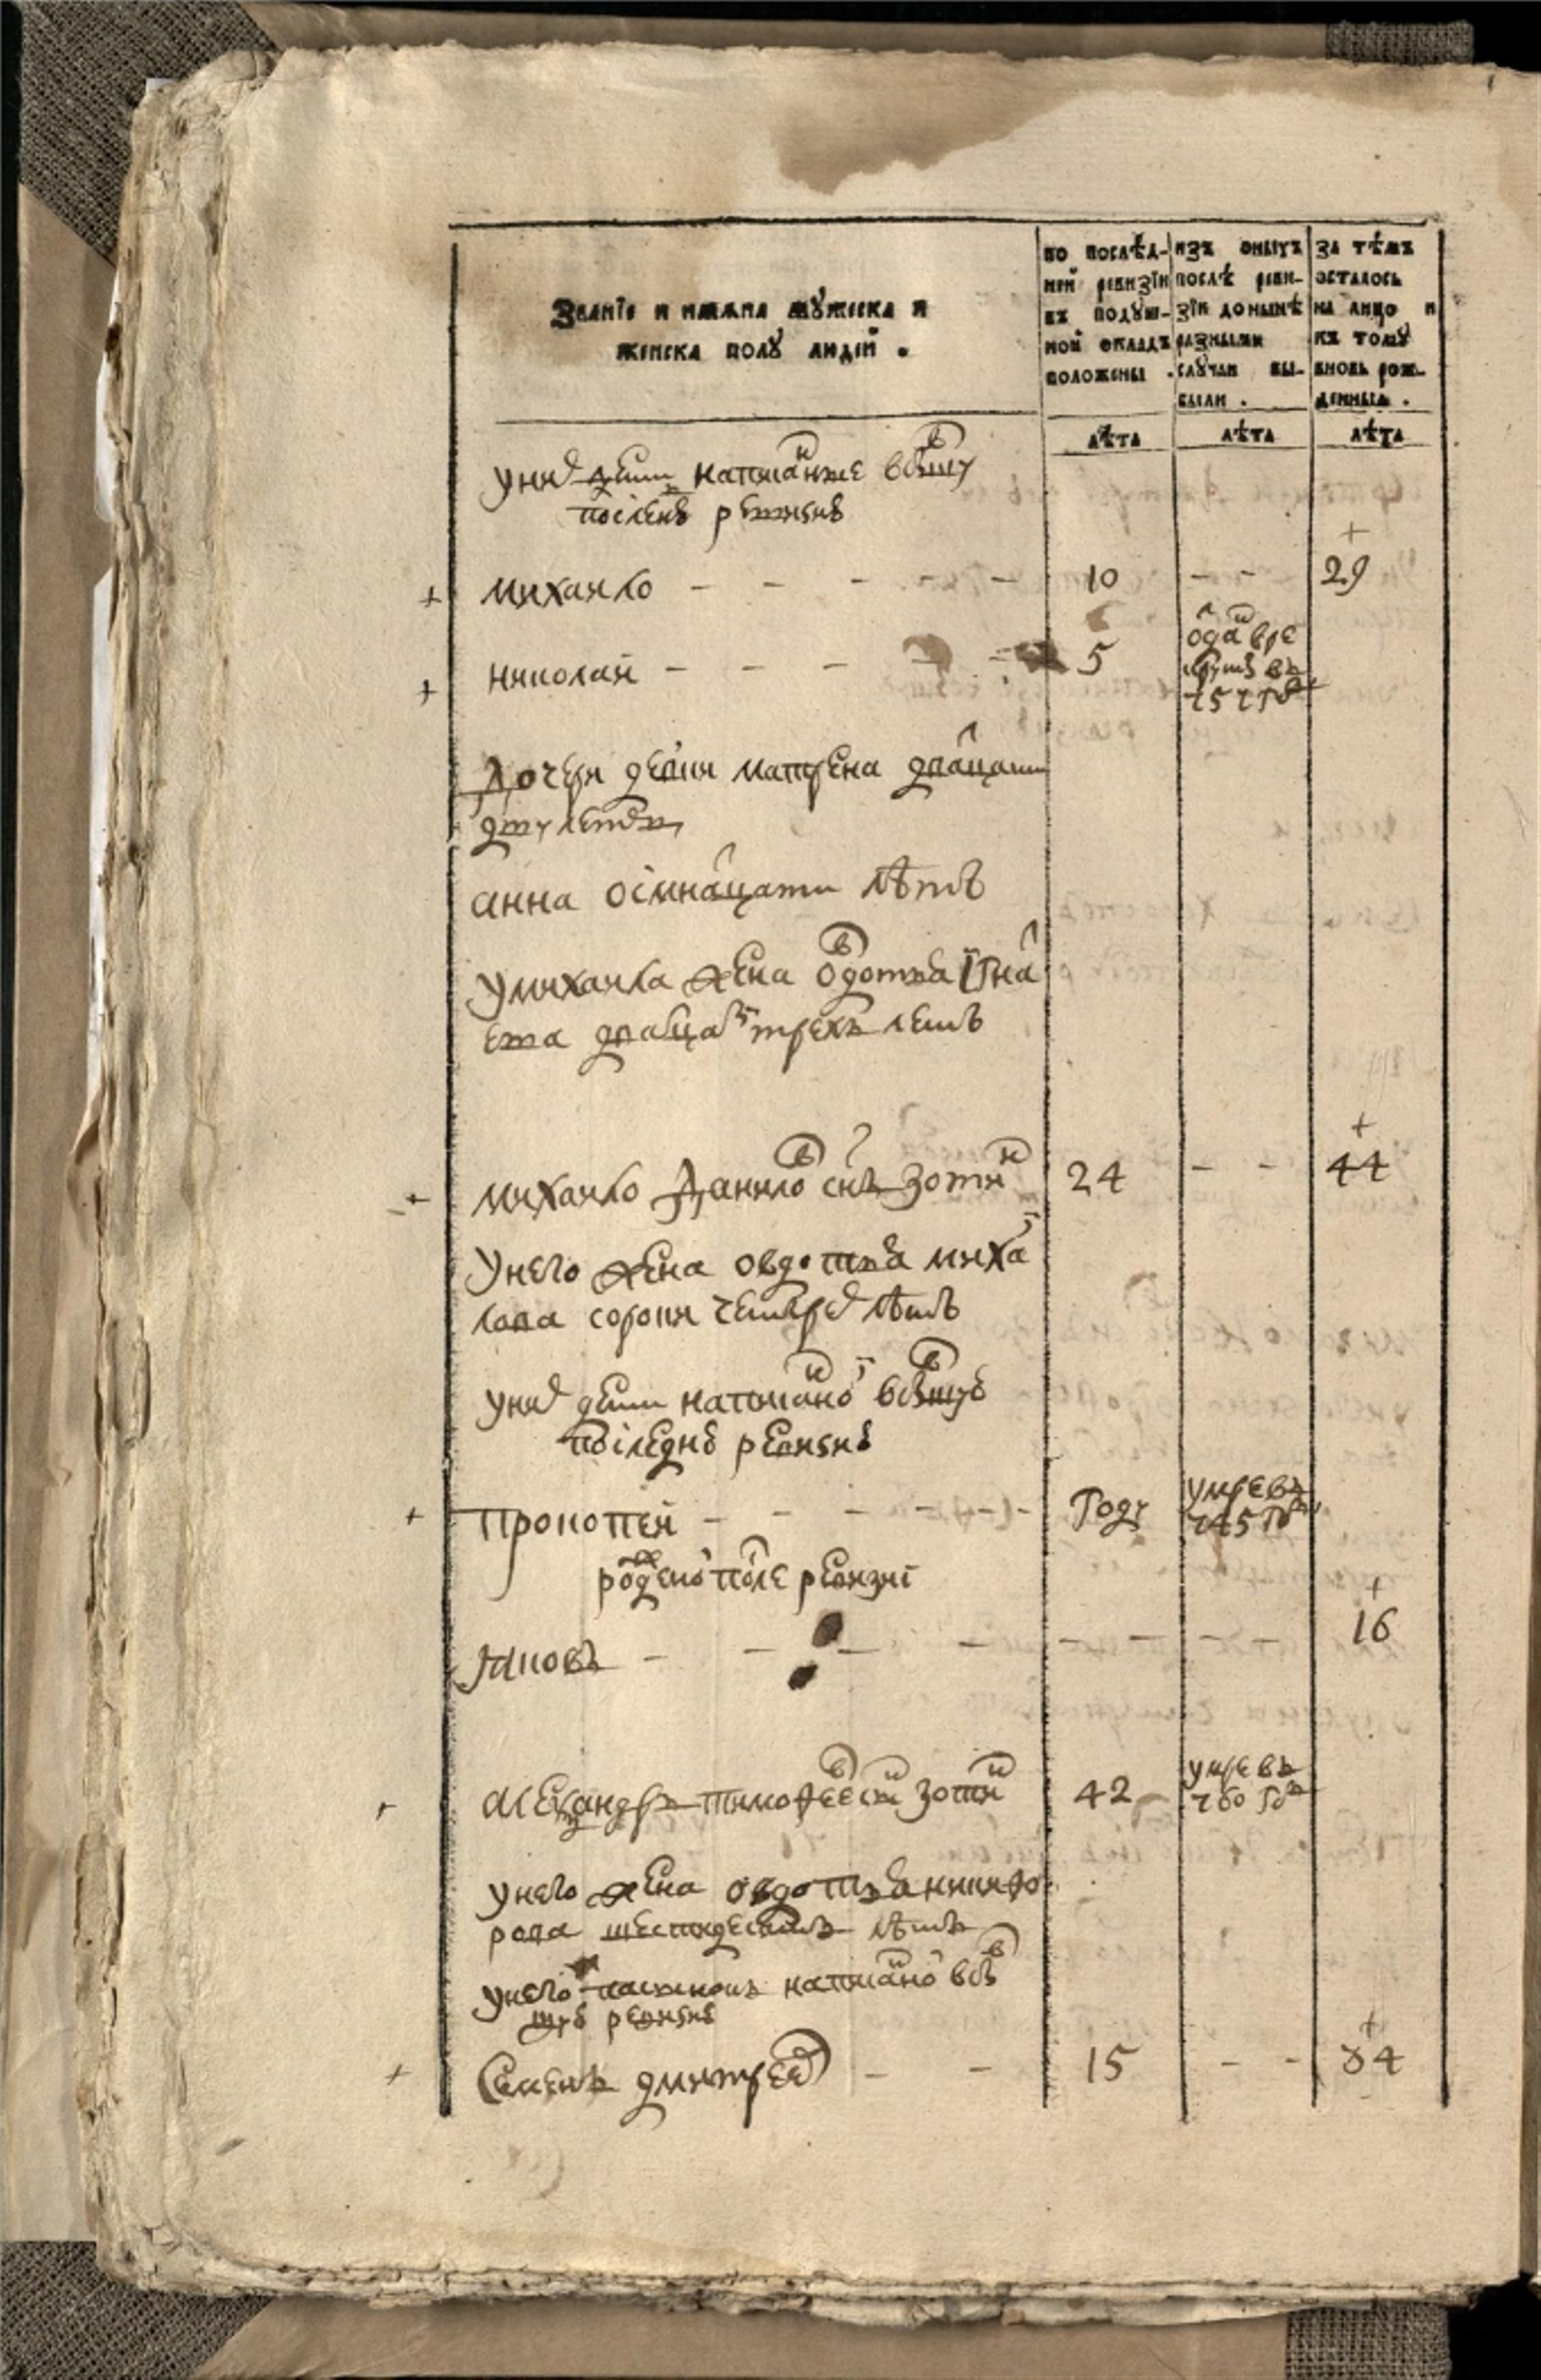 Званїе и имѧна мꙋжеска и
женска полꙋ людей .
по послѣд-
ней ревизїи
въ подꙋш-
ной окладъ
положены .
изъ оныхъ
послѣ реви-
зїи до нынѣ
разными
слꙋчаи вы-
были .
за тѣмъ
осталось
на лицо и
къ томꙋ
вновь рож-
денныѧ .
лѣта
лѣта
лѣта
у них дети написанные
последне ревизие
+
михаило - - - - - 10 - - 29
николай - - - - - 5
одан в ре
круты въ
757 г
дочери девки матрена двацати
дву летъ
анна осмнацати лѣтъ
у михаила жена овдотья Їгна
ева двацати трехъ летъ
+
михаило данилов снъ зотин 24 - - 44
у него жена овдотья миха
лова сороки четырех лѣтъ
у них дети написаной
последне ревизие
прокопей - - - - - году
умре въ
745 г
рожденой после ревизиї
+
яковъ - - - - - - - - 16
алеѯандръ тимофеев сн зотин 42
умре въ
760 г
у него жена овдотья никифо
рова шестидесятъ лѣтъ
у него пасынокъ написаной
ревизие
+
Семенъ дмитреев - - 15 - - 34